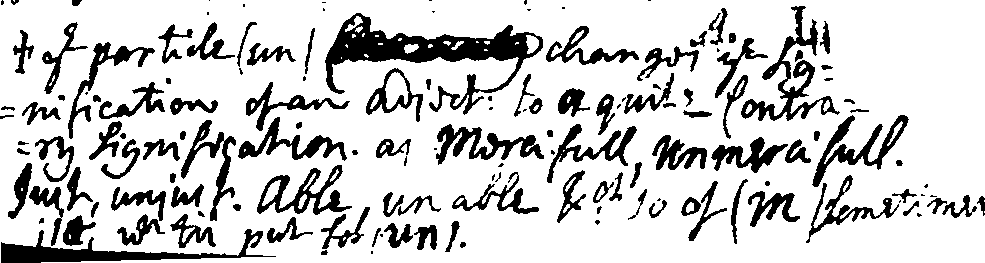 + ye particle (un) changes ye sig=
=nification of an adject: to a quite Contra=
=ry signification. as Mercifull, unmercifull.
Just, unjust. Able, unable &ct. so of (in) sometimes
wn tis put for (un).